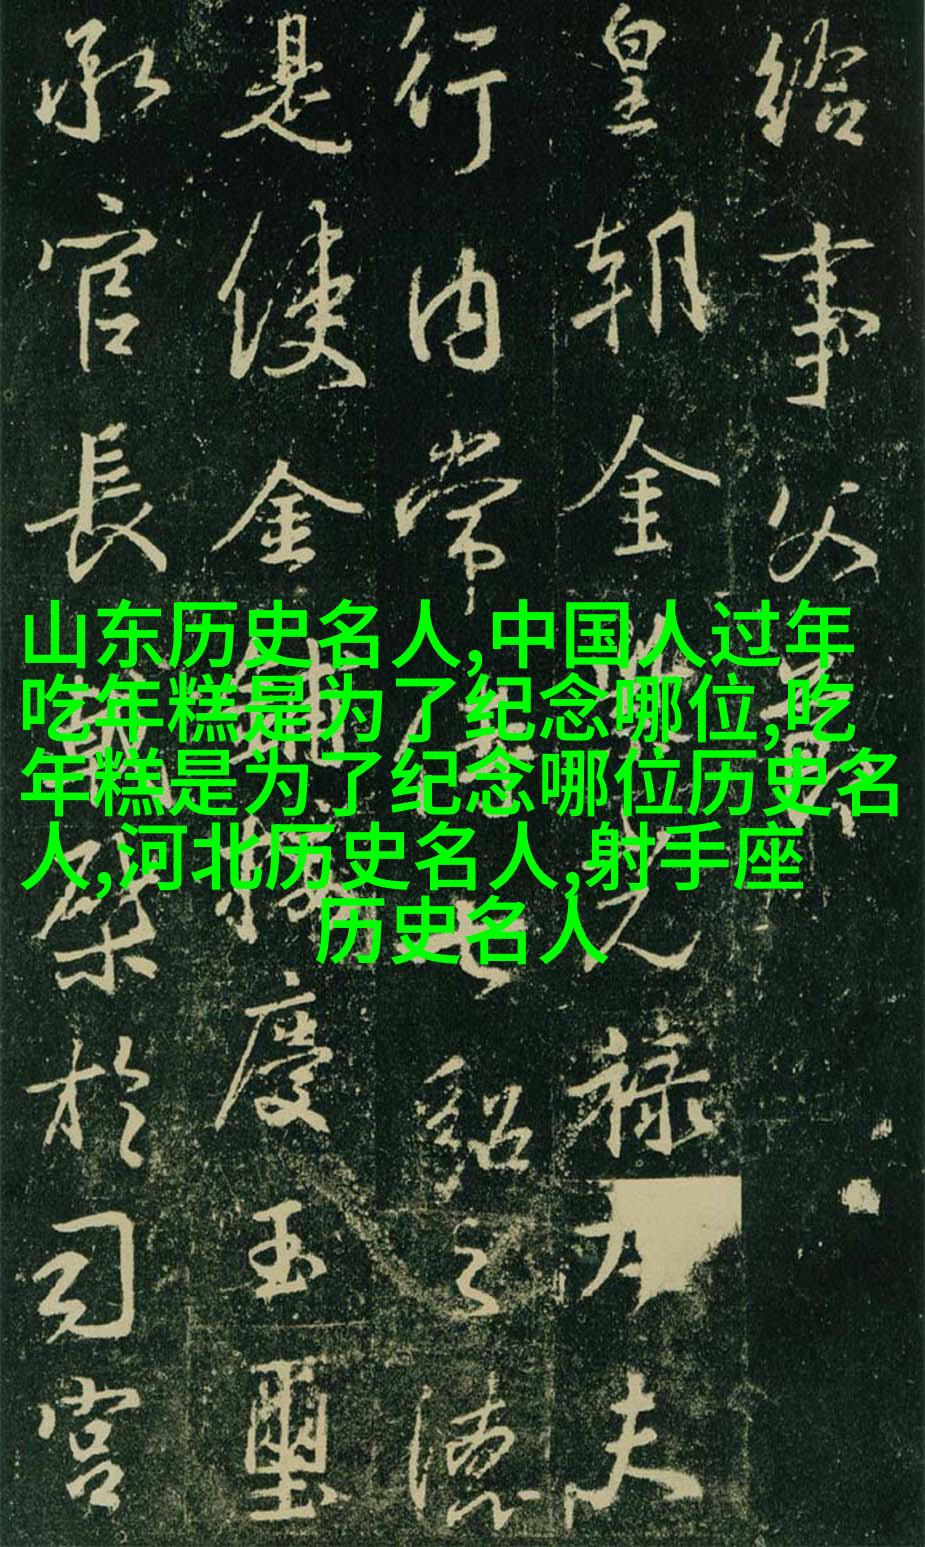 給事父
皇朝金光祿大夫
行內常侍上紹之德
是使金慶玉璽
承官長於司宮
山东历史名人,中国人过年
吃年糕是为了纪念哪位,吃
年糕是为了纪念哪位历史名
人,河北历史名人,射手座
历史名人